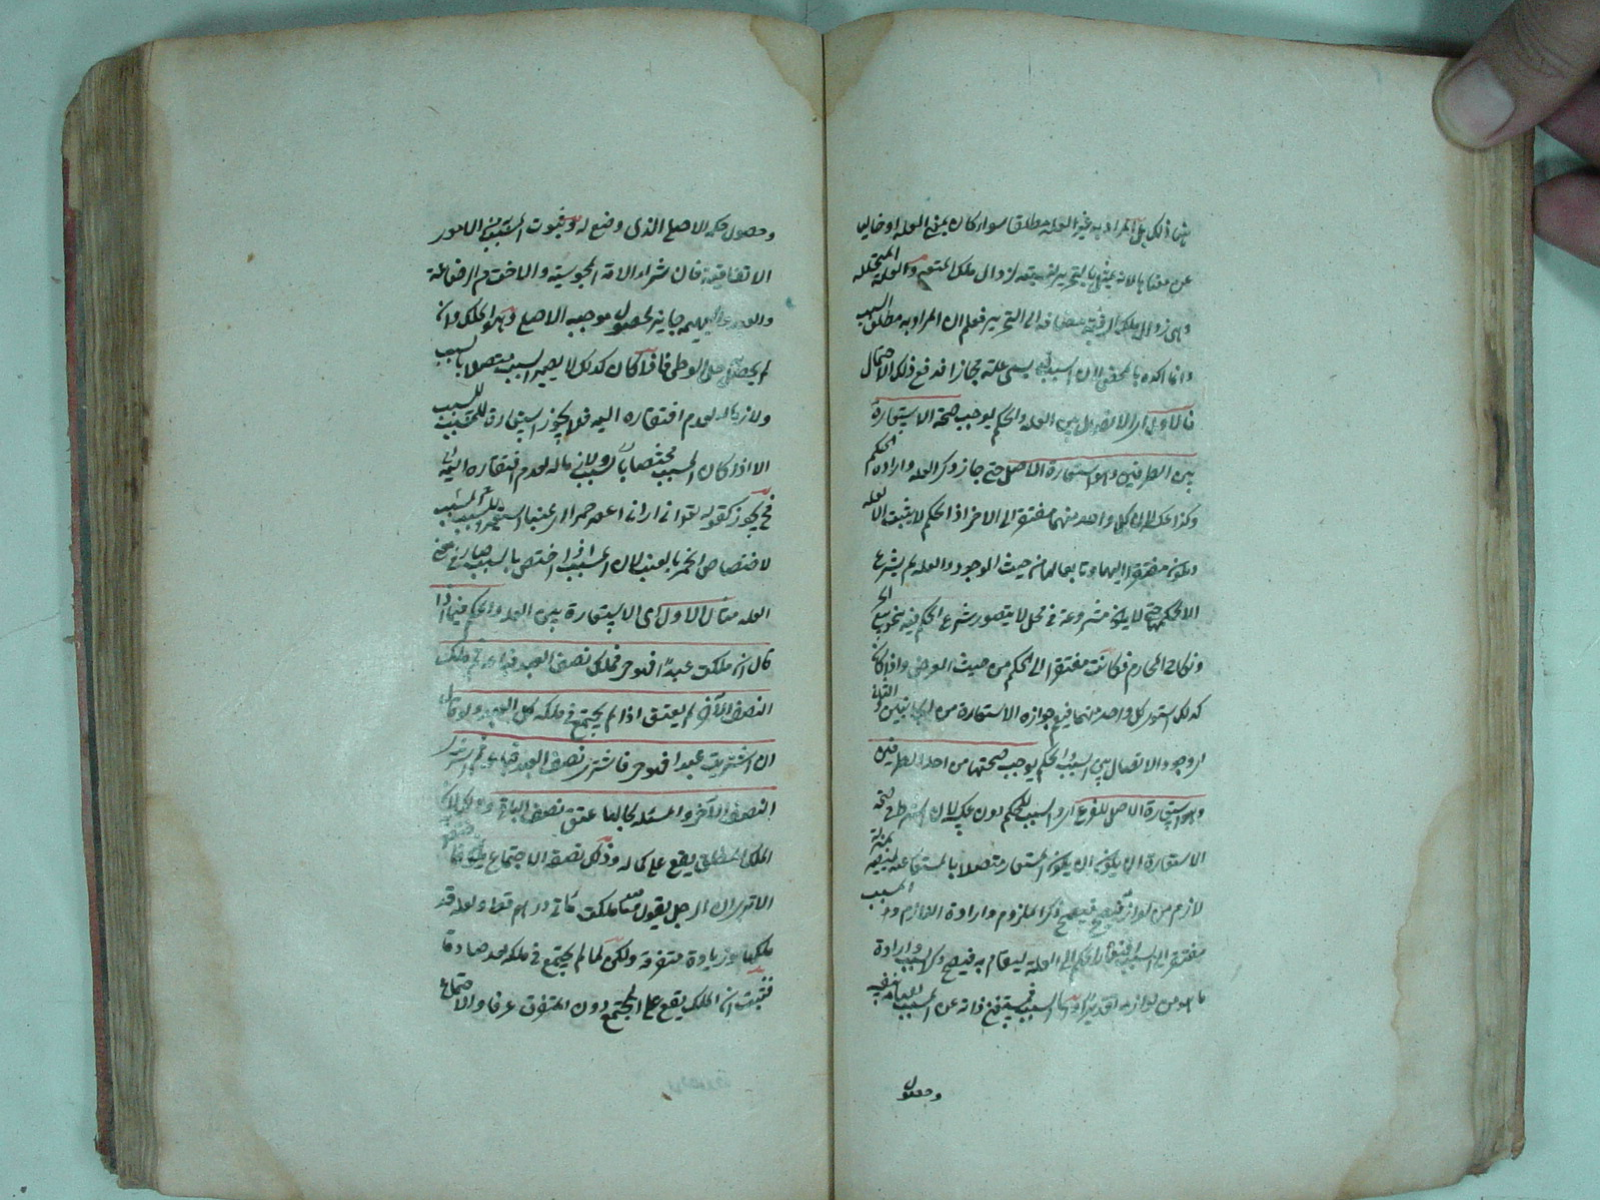 عن ذلك بل المراد به غير العلة مطلقا سواء كان بمعنى العلة او خاليا
عن معناها لانه يمثل بالتحرير لزوال ملك المتعة والعلة المتخللة
وهي زوال ملك الرقبة مضافة الى التحرير فعلم ان المراد به مطلق السبب
وانما اكده بالمحض لان السبب يسمى علة مجازا فدفع ذلك الاحتمال
فالاول اى الاتصال بين العلة والحكم يوجب صحة الاستعارة
بين الطرفين وهو استعارة الاصل حتى جاز ذكر العلة وارادة الحكم
وكذا عكسه لان كل واحد منهما مفتقر الى الاخر اذ الحكم لا يثبت الا بالعلة
فيكون مفتقرا اليها وتابعا لها من حيث الوجود والعلة لم يشرع
الا لحكمها حتى لا يكون مشروعة في محل لا يتصور شرع الحكم فيه نحو بيع الحر
ونكاح المحارم فكانت مفتقرا الى الحكم من حيث الغرض واذا كان
كذلك استوى كل واحد منهما فيعم جوازه الاستعارة من الجانبين والثاني
اى وجود الاتصال بين السبب والحكم يوجب صحتها من احد الطرفين
وهو استعارة الاصل للفرع اى السبب للحكم دون عكسه لان الشرط في صحة
الاستعارة ان يكون المستعار متصلا بالمستعار عنه بمنزلة
لازم من لوازمه فيصح ذكر الملزوم وارادة اللازم والمسبب
مفتقر الى السبب افتقار الحكم الى العلة لقيامه به فيصح ذكر السبب وارادة
ما هو من لوازمه السبب فمستغن في ذاته عن المسبب لقيامه بنفسه
وحصول
وحصول حكمه الاصلي الذى وضع له وثبوت المسبب من الامور
الاتفاقية فان شراء الامة المجوسية والاخت من الرضاعة
والعبد والبهيمة جايز لحصول موجبه الاصلي وهو الملك وان
لم يحصل حل الوطى فاذا كان كذلك لا يصير السبب متصلا بالمسبب
ولازما له لعدم افتقاره اليه فلا يجوز استعارة المسبب للسبب
الا اذا كان المسبب مختصا بالسبب ولازما له لعدم افتقاره اليه
فح يجوز كقوله تعالى انى ارانى اعصر خمرا اى عنبا استعير المسبب للسبب
لاختصاص الخمر بالعنب لان المسبب اذا اختص بالسبب صار في معنى
العلة مثال الاول اى الاستعارة بين العلة والحكم فيما اذا
قال ان ملكت عبدا فهو حر فملك نصف العبد فباعه ثم ملك
النصف الآخر لم يعتق اذا لم يجتمع في ملكه كل العبد ولو قال
ان اشتريت عبدا فهو حر فاشترى نصف العبد فباعه ثم اشترى
النصف الآخر والمسئلة بحالها عتق نصف الباقي وذلك لان
الملك المطلق يقع على كماله وذلك بصفة الاجتماع
الا ترى ان الرجل يقول ما ملكت مائتى درهم قط ولعله قد
ملكها وزيادة متفرقة ولكن لما لم يجتمع في ملكه يعد صادقا
فثبت ان الملك يقع على المجتمع دون المتفرق عرفا والاجتماع